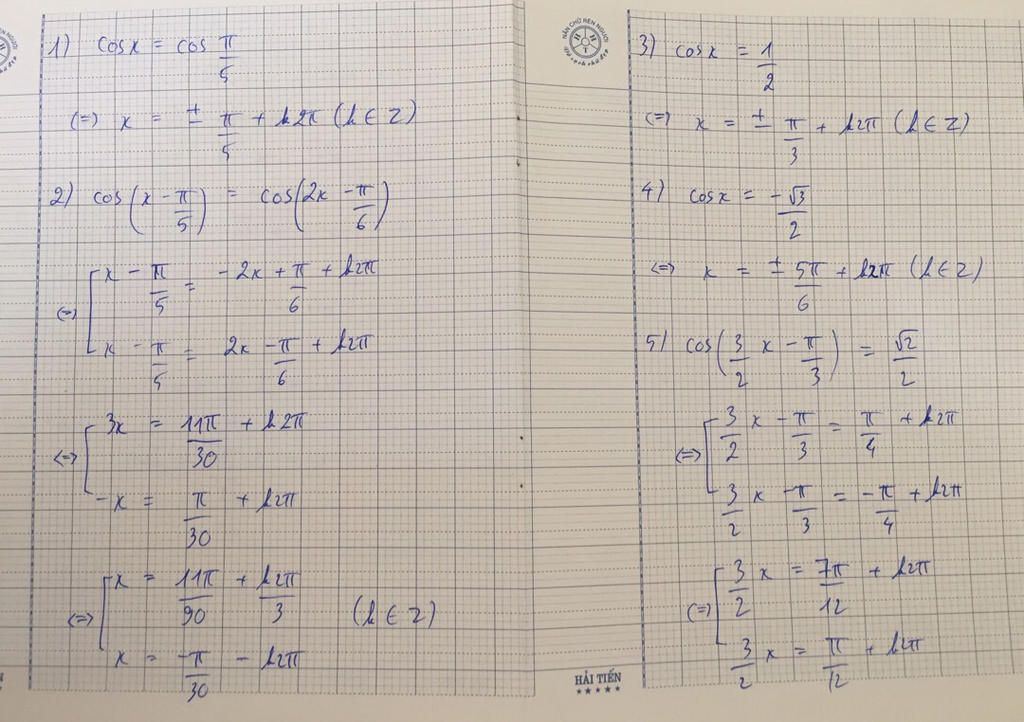 1) cos x = cos π/5
(=) x = ± π/5 + k2π (k ∈ Z)
2) cos(x - π/5) = cos(2x - π/6)
(=) [ x - π/5 = -2x + π/6 + k2π
x - π/5 = 2x - π/6 + k2π
(=) [ 3x = 11π/30 + k2π
-x = π/30 + k2π
(=) [ x = 11π/90 + k2π/3 (k ∈ Z)
x = -π/30 - k2π
NẮN CHỮ RÈN NGƯỜI
3) cos x = 1/2
(=) x = ± π/3 + k2π (k ∈ Z)
4) cos x = -√3/2
(=) x = ± 5π/6 + k2π (k ∈ Z)
5) cos(3/2 x - π/3) = √2/2
(=) [ 3/2 x - π/3 = π/4 + k2π
3/2 x - π/3 = -π/4 + k2π
(=) [ 3/2 x = 7π/12 + k2π
3/2 x = π/12 + k2π
HẢI TIẾN